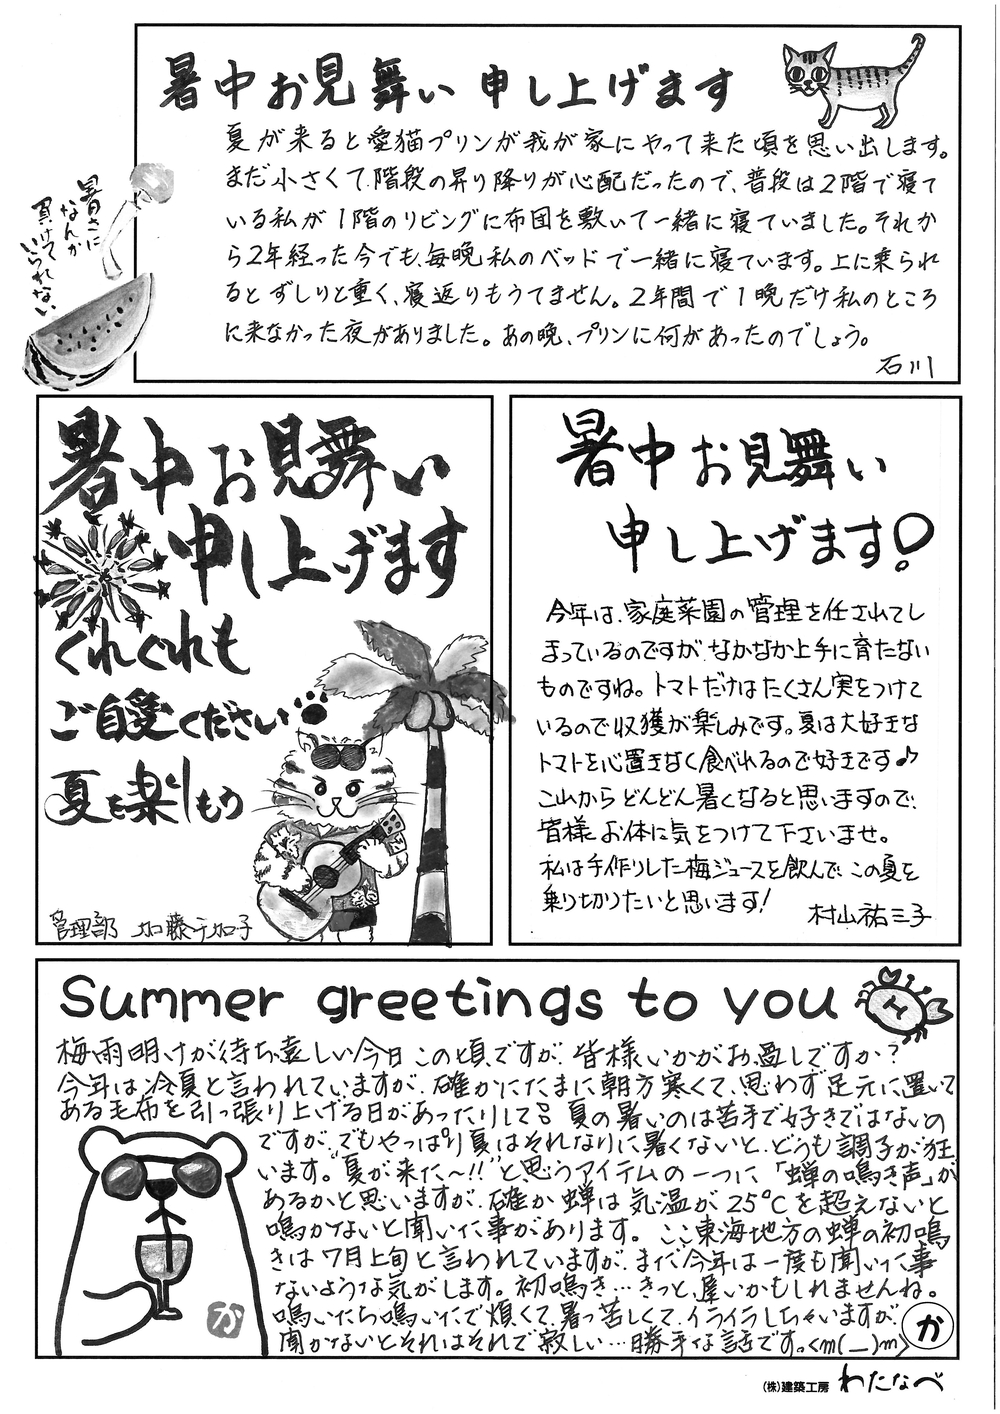 暑中お見舞い 申し上げます
夏が来ると愛猫プリンが我が家にやって来た頃を思い出します。
まだ小さくて、階段の昇り降りが心配だったので、普段は2階で寝て
いる私が1階のリビングに布団を敷いて一緒に寝ていました。それか
ら2年経った今でも、毎晩私のベッドで一緒に寝ています。上に乗られ
るとずしりと重く、寝返りもうてません。2年間で1晩だけ私のところ
に来なかった夜がありました。あの晩、プリンに何があったのでしょう。
石川
暑さに
なんか
負けて
いられない
暑中お見舞い
申し上げます
くれぐれも
ご自愛ください
夏を楽しもう
管理部 加藤千加子
暑中お見舞い
申し上げます!
今年は、家庭菜園の管理を任されてし
まっているのですが、なかなか上手に育たない
ものですね。トマトだけはたくさん実をつけて
いるので収獲が楽しみです。夏は大好きな
トマトを心置きなく食べれるので好きです♪
これからどんどん暑くなると思いますので、
皆様お体に気をつけて下さいませ。
私は手作りした梅ジュースを飲んで、この夏を
乗り切りたいと思います!
村山祐三子
Summer greetings to you
梅雨明けが待ち遠しい今日この頃ですが、皆様いかがお過しですか?
今年は冷夏と言われていますが、確かにたまに朝方寒くて、思わず足元に置いて
ある毛布を引っ張り上げる日があったりして。夏の暑いのは苦手で好きではないの
ですが、でもやっぱり夏はそれなりに暑くないと、どうも調子が狂
います。“夏が来た〜!!”と思うアイテムの一つに「蝉の鳴き声」が
あるかと思いますが、確か蝉は気温が25℃を超えないと
鳴かないと聞いた事があります。ここ東海地方の蝉の初鳴
きは7月上旬と言われていますが、まだ今年は一度も聞いた事
ないような気がします。初鳴き…きっと、遅いかもしれませんね。
鳴いたら鳴いたで煩くて、暑っ苦しくて、イライラしちゃいますが、
聞かないとそれはそれで寂しい…勝手な話です。<m(__)m>
か
か
(株)建築工房 わたなべ